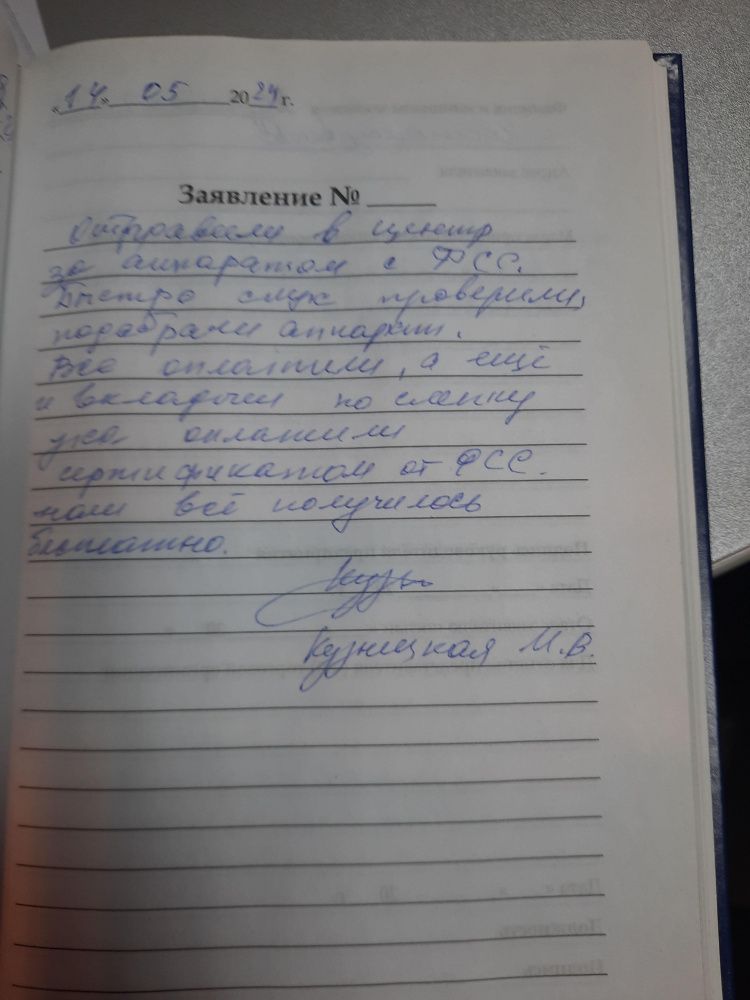 «14» 05 2024 г.
Заявление № ____
Отправили в центр
за аппаратом с ФСС.
Быстро слух проверили,
подобрали аппарат.
Всё оплатили, а ещё
и вкладыш по слепку
уха оплатили
сертификатом от ФСС.
нам всё получилось
бесплатно.
Кузницкая М.В.